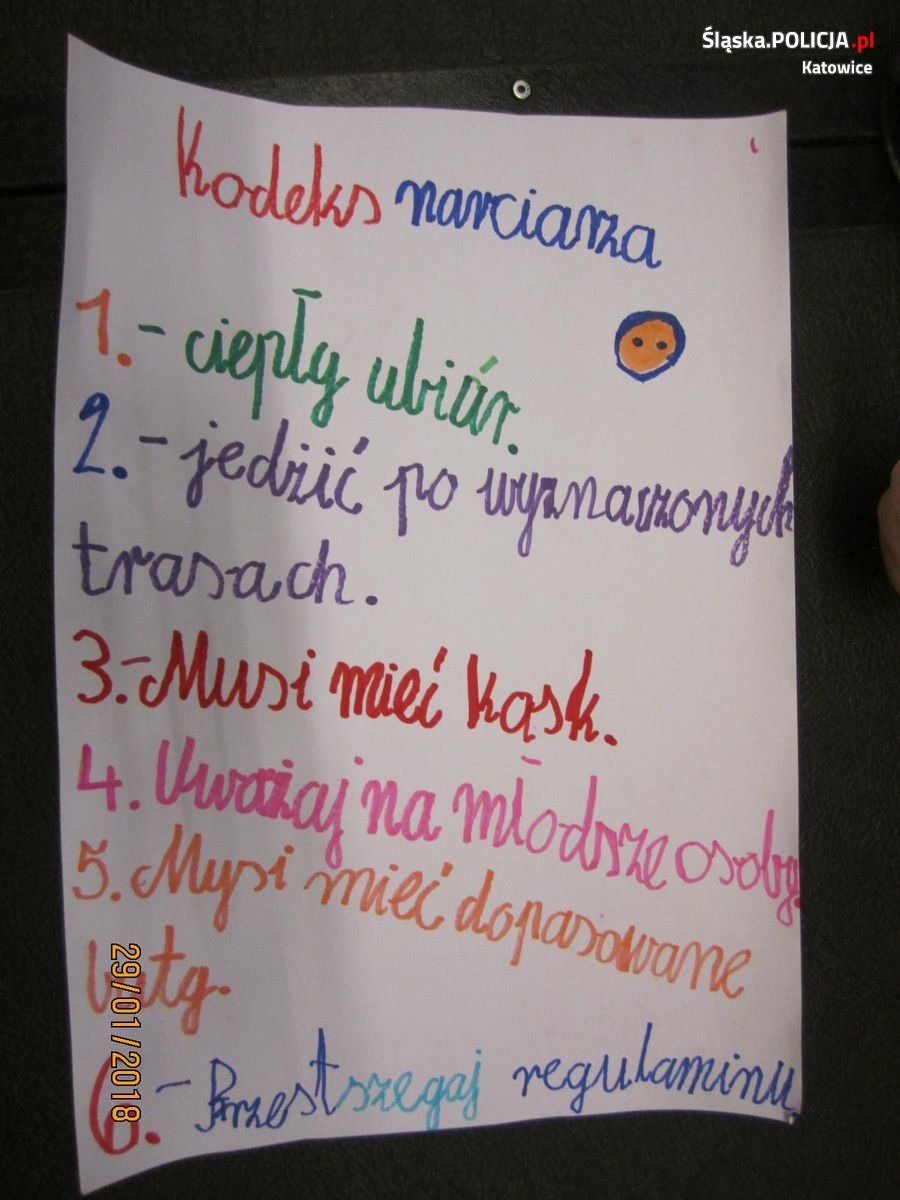 Śląska.POLICJA.pl
Katowice
Kodeks narciarza
1.- ciepły ubiór.
2.- jedzić po wyznaczonych
trasach.
3.- Musi mieć kask.
4. Uważaj na młodsze osoby.
5. Mysi mieć dopasowane
buty.
6.- Przestszegaj regulaminu
29/01/2018